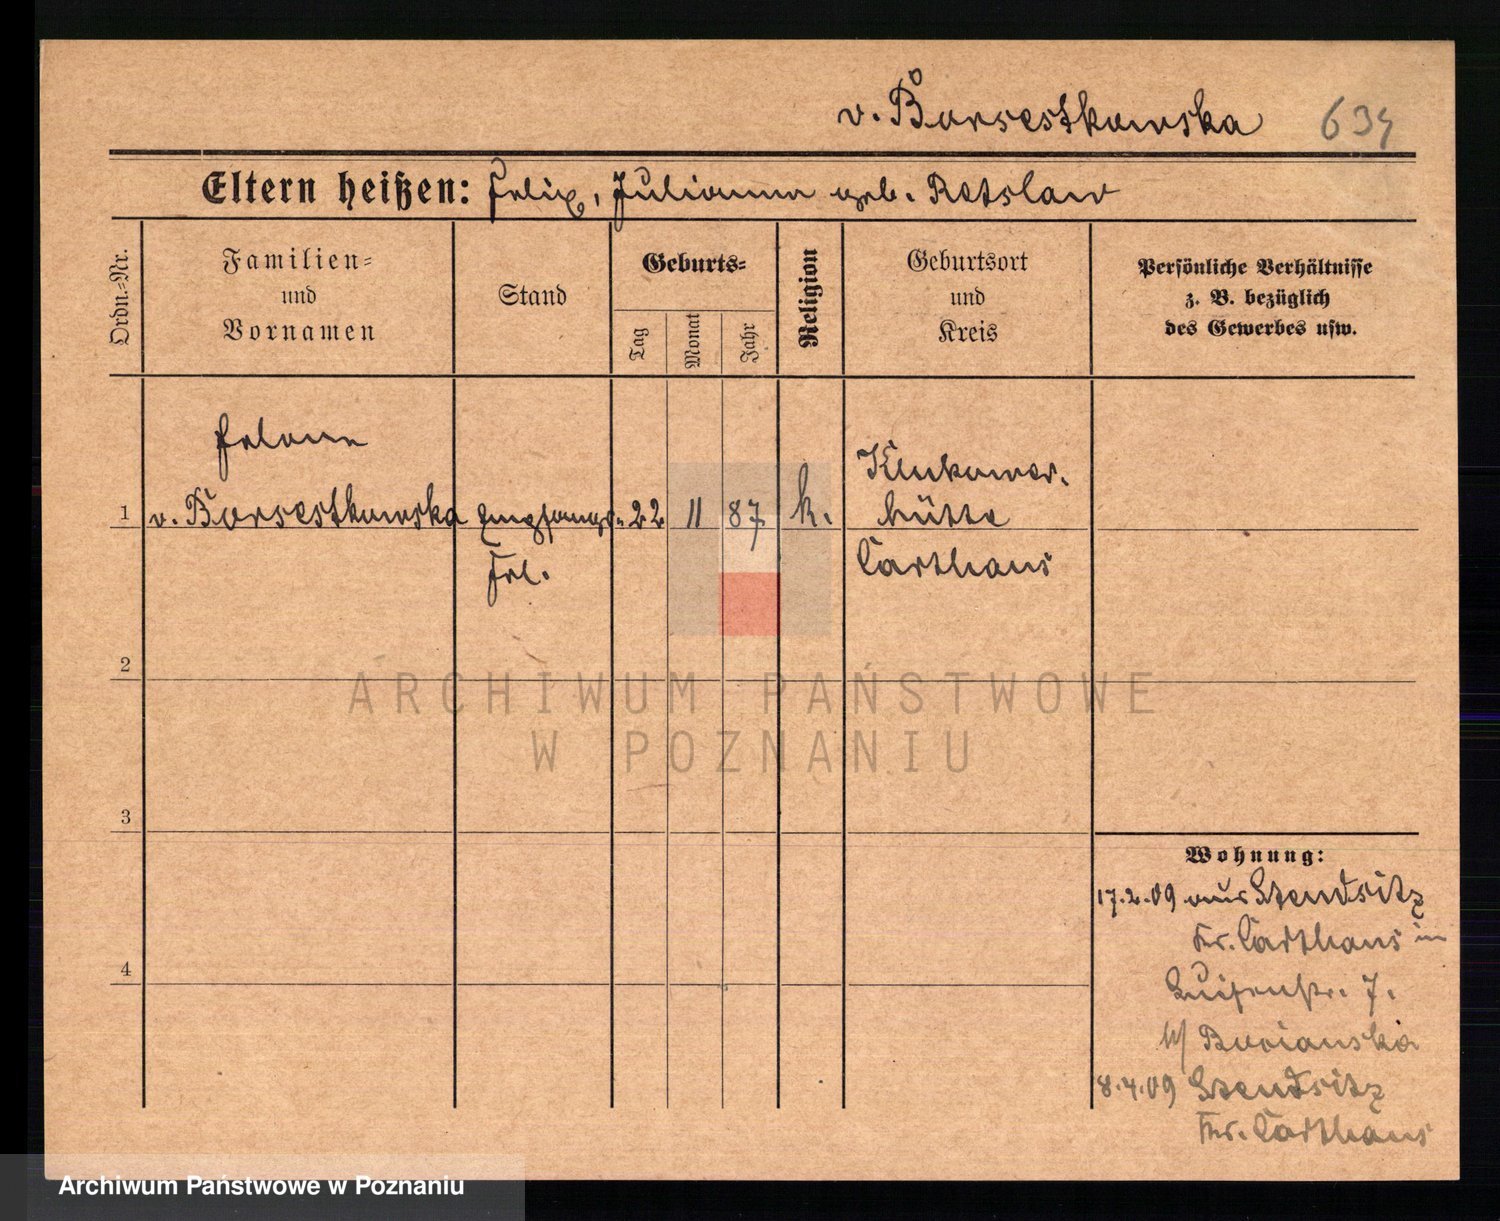 v. Borzestkowska 634
Eltern heißen: Felix, Julianna geb. Retslaw
Ordn.-Nr.
Familien-
und
Vornamen
Stand
Geburts-
Tag
Monat
Jahr
Religion
Geburtsort
und
Kreis
Persönliche Verhältnisse
z. B. bezüglich
des Gewerbes usw.
Helene
1 v. Borzestkowska Empfangs- 22 11 87 k. Klukower-
hütte
Frl. Carthaus
2
ARCHIWUM PAŃSTWOWE
W POZNANIU
3
Wohnung:
17.2.09 aus Stendsitz
Kr. Carthaus in
4
Luisenstr. 7.
b/
8.4.09 Stendsitz
Kr. Carthaus
Archiwum Państwowe w Poznaniu